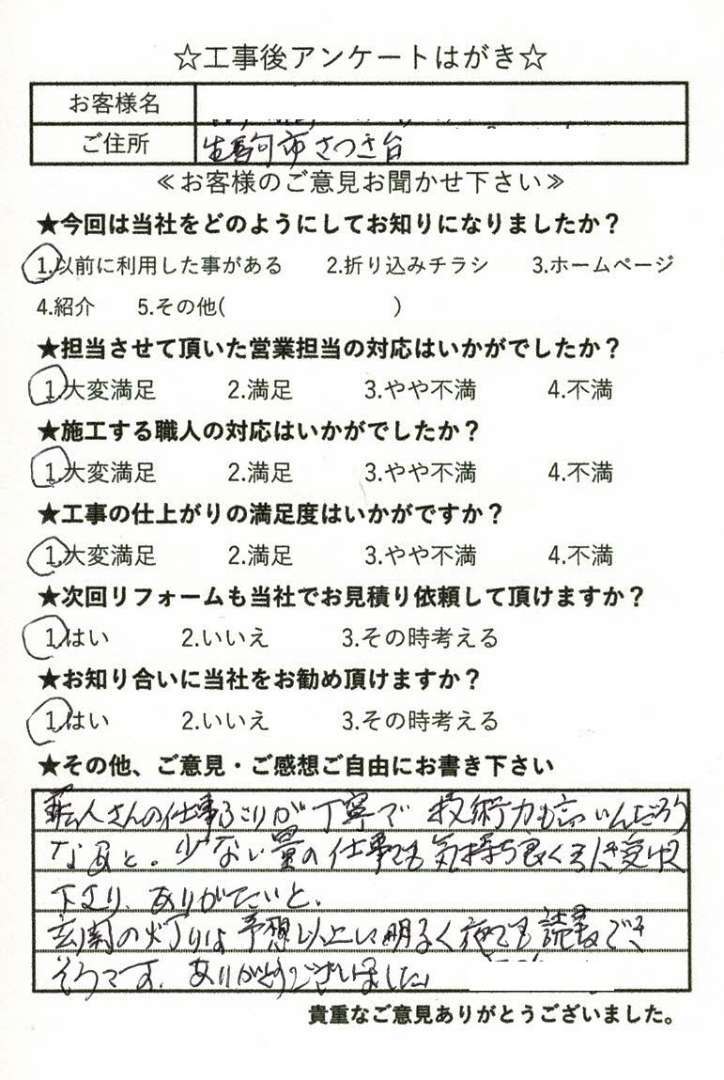 ☆工事後アンケートはがき☆
お客様名
ご住所 生駒市さつき台
≪お客様のご意見お聞かせ下さい≫
★今回は当社をどのようにしてお知りになりましたか？
1.以前に利用した事がある 2.折り込みチラシ 3.ホームページ
4.紹介 5.その他( )
★担当させて頂いた営業担当の対応はいかがでしたか？
1.大変満足 2.満足 3.やや不満 4.不満
★施工する職人の対応はいかがでしたか？
1.大変満足 2.満足 3.やや不満 4.不満
★工事の仕上がりの満足度はいかがですか？
1.大変満足 2.満足 3.やや不満 4.不満
★次回リフォームも当社でお見積り依頼して頂けますか？
1.はい 2.いいえ 3.その時考える
★お知り合いに当社をお勧め頂けますか？
1.はい 2.いいえ 3.その時考える
★その他、ご意見・ご感想ご自由にお書き下さい
職人さんの仕事ぶりが丁寧で 技術力も高いんだろう
なぁと。少ない量の仕事でも気持ち良く引き受け
下さり、ありがたいと、
玄関の灯りは予想以上に明るく夜でも読書でき
そうです。ありがとうございました
貴重なご意見ありがとうございました。